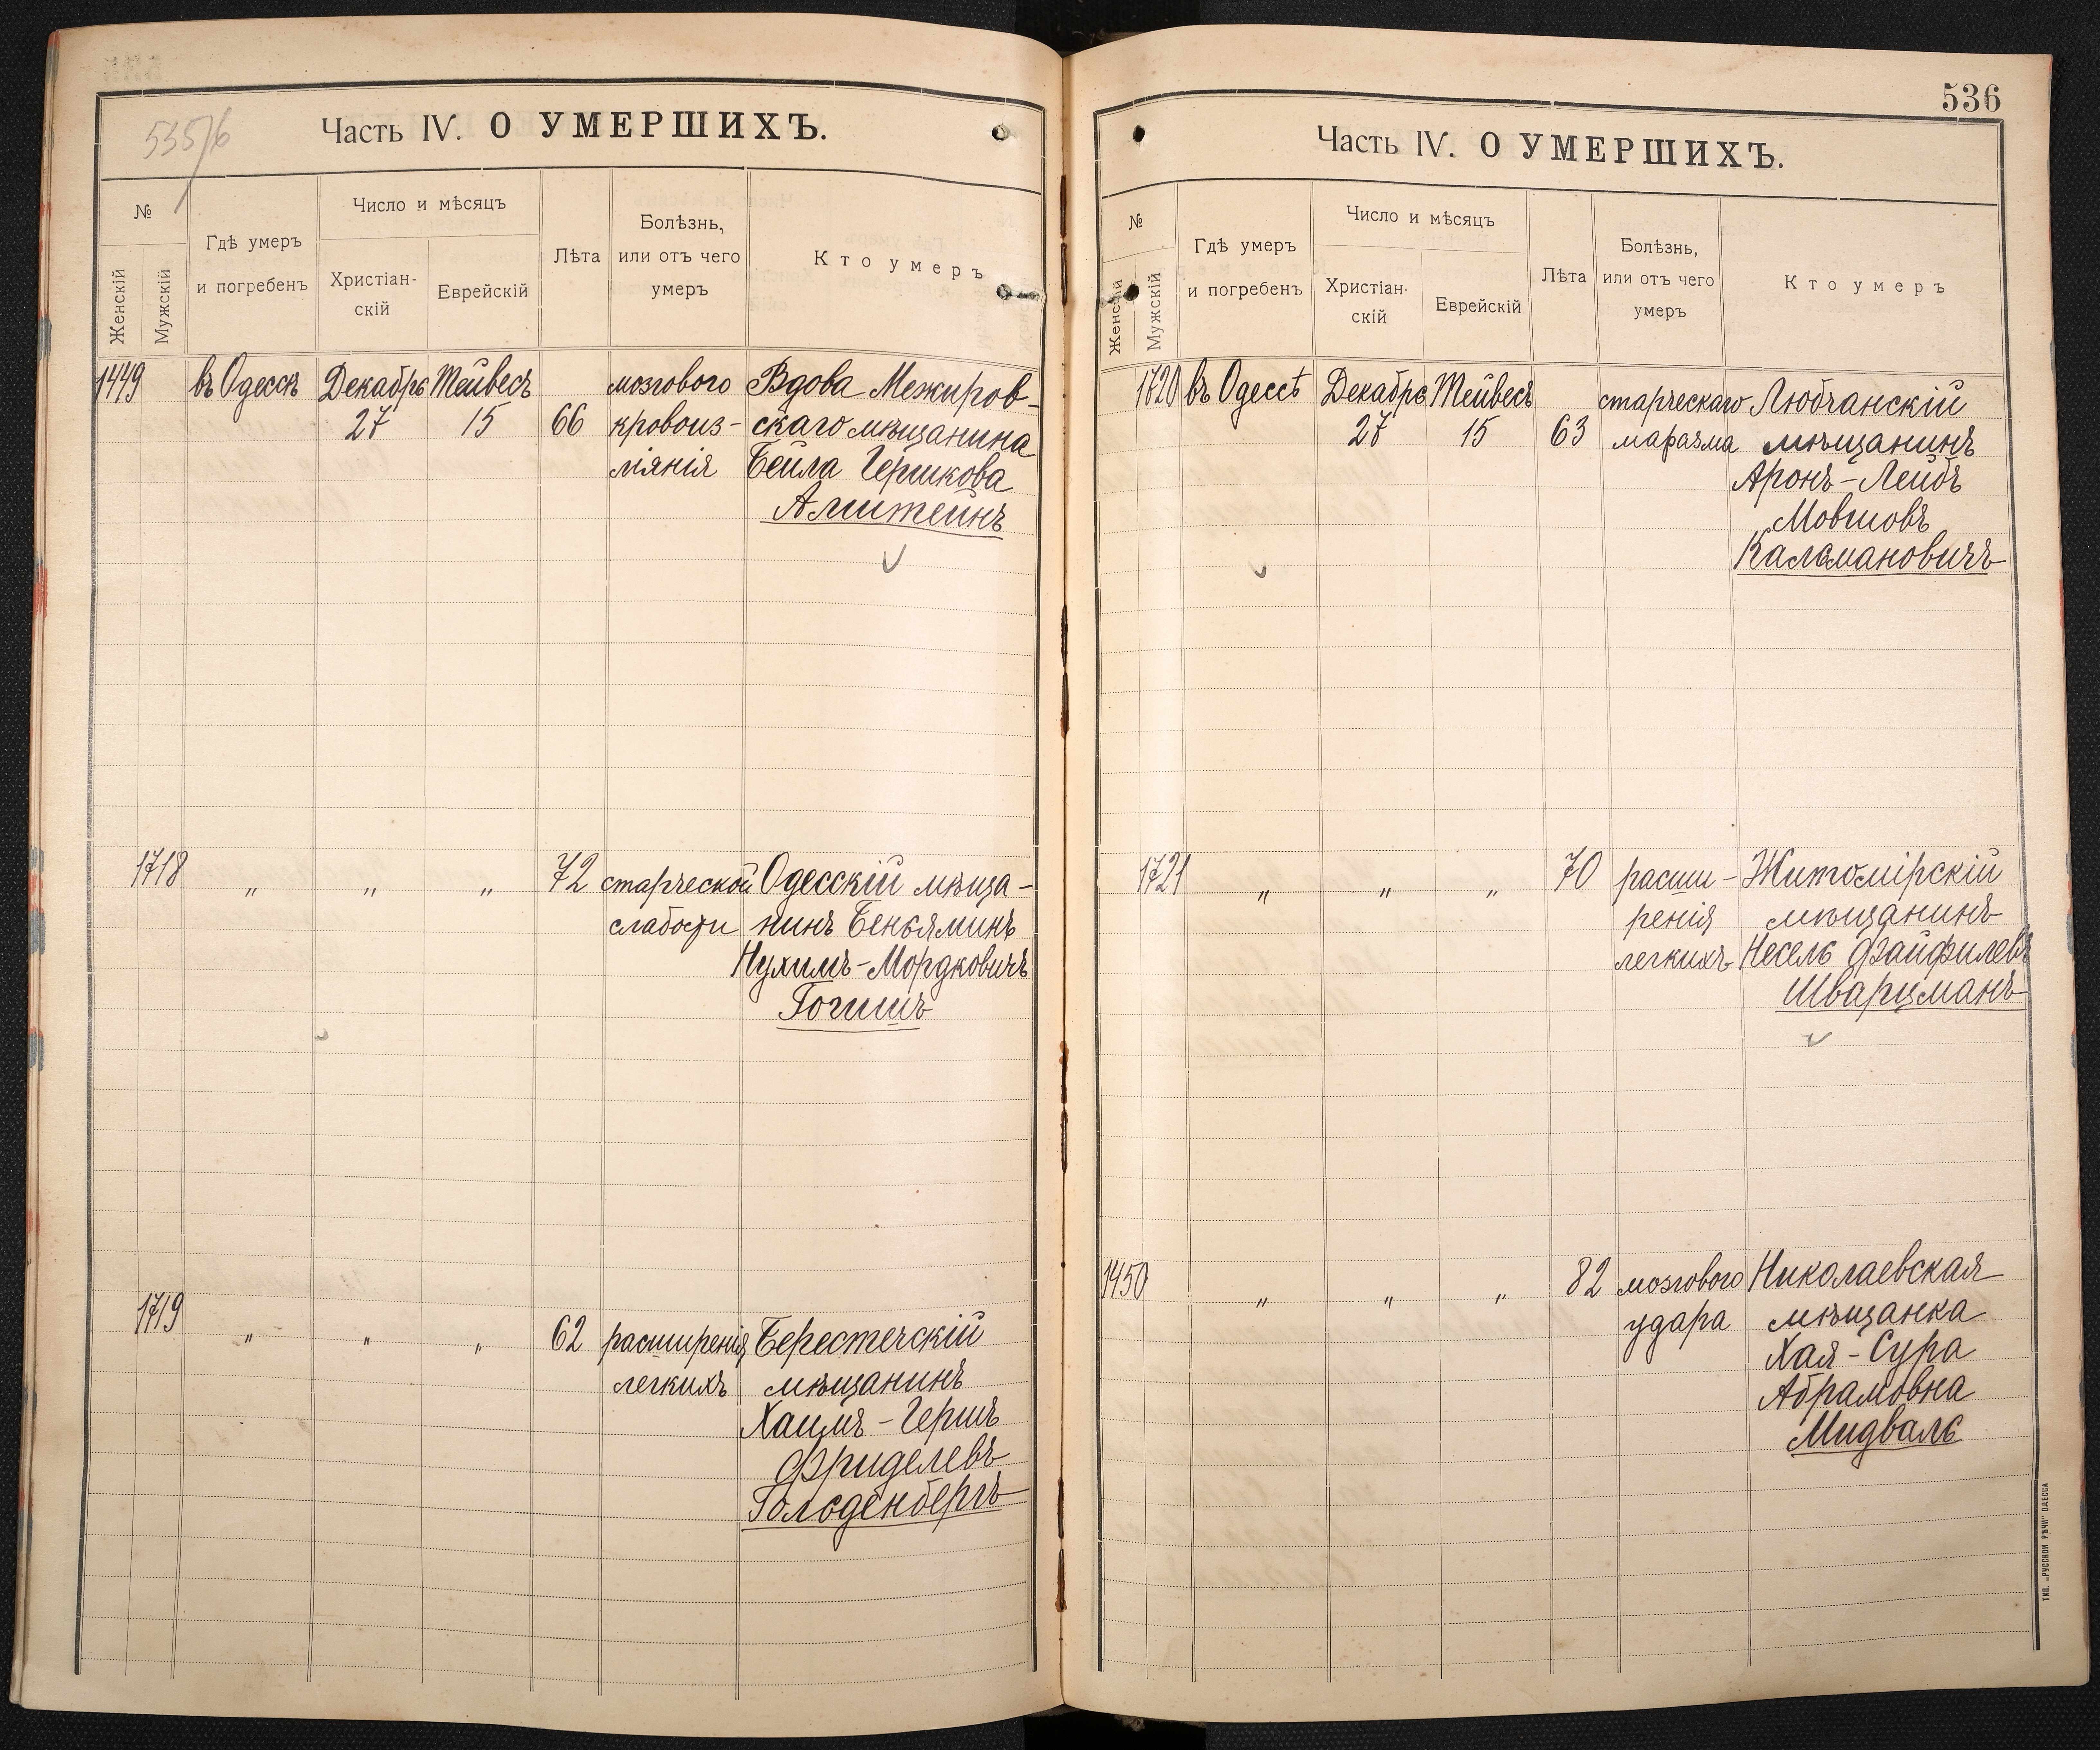 535/6
Часть IV. О УМЕРШИХЪ.
№
Женскій
Мужскій
Гдѣ умеръ
и погребенъ
Число и мѣсяцъ
Христіан-
скій
Еврейскій
Лѣта
Болѣзнь,
или отъ чего
умеръ
Кто умеръ
1449 въ Одессѣ Декабрь Тейвесъ мозгового Вдова Межиров-
27 15 66 кровоиз- скаго мѣщанина
ліянія Бейла Гершкова
Алштейнъ
1718 „ „ „ 72 старческой Одесскій мѣща-
слабости нинъ Беньяминъ
Нухимъ-Мордковичъ
Гогишъ
1719 „ „ „ 62 расширенія Берестечскій
легкихъ мѣщанинъ
Хаимъ-Гершъ
Фриделевъ
Гольденбергъ
536
Часть IV. О УМЕРШИХЪ.
№
Женскій
Мужскій
Гдѣ умеръ
и погребенъ
Число и мѣсяцъ
Христіан-
скій
Еврейскій
Лѣта
Болѣзнь,
или отъ чего
умеръ
Кто умеръ
1720 въ Одессѣ Декабрь Тейвесъ старческаго Любчанскій
27 15 63 маразма мѣщанинъ
Аронъ-Лейбъ
Мовшовъ
Кальмановичъ
1721 „ „ „ 70 расши- Житомірскій
ренія мѣщанинъ
легкихъ Несель Файфилевъ
Шварцманъ
1450 „ „ „ 82 мозгового Николаевская
удара мѣщанка
Хая-Сура
Абрамовна
Мидваль
ТИП. „РУССКОЙ РѢЧИ" ОДЕССА